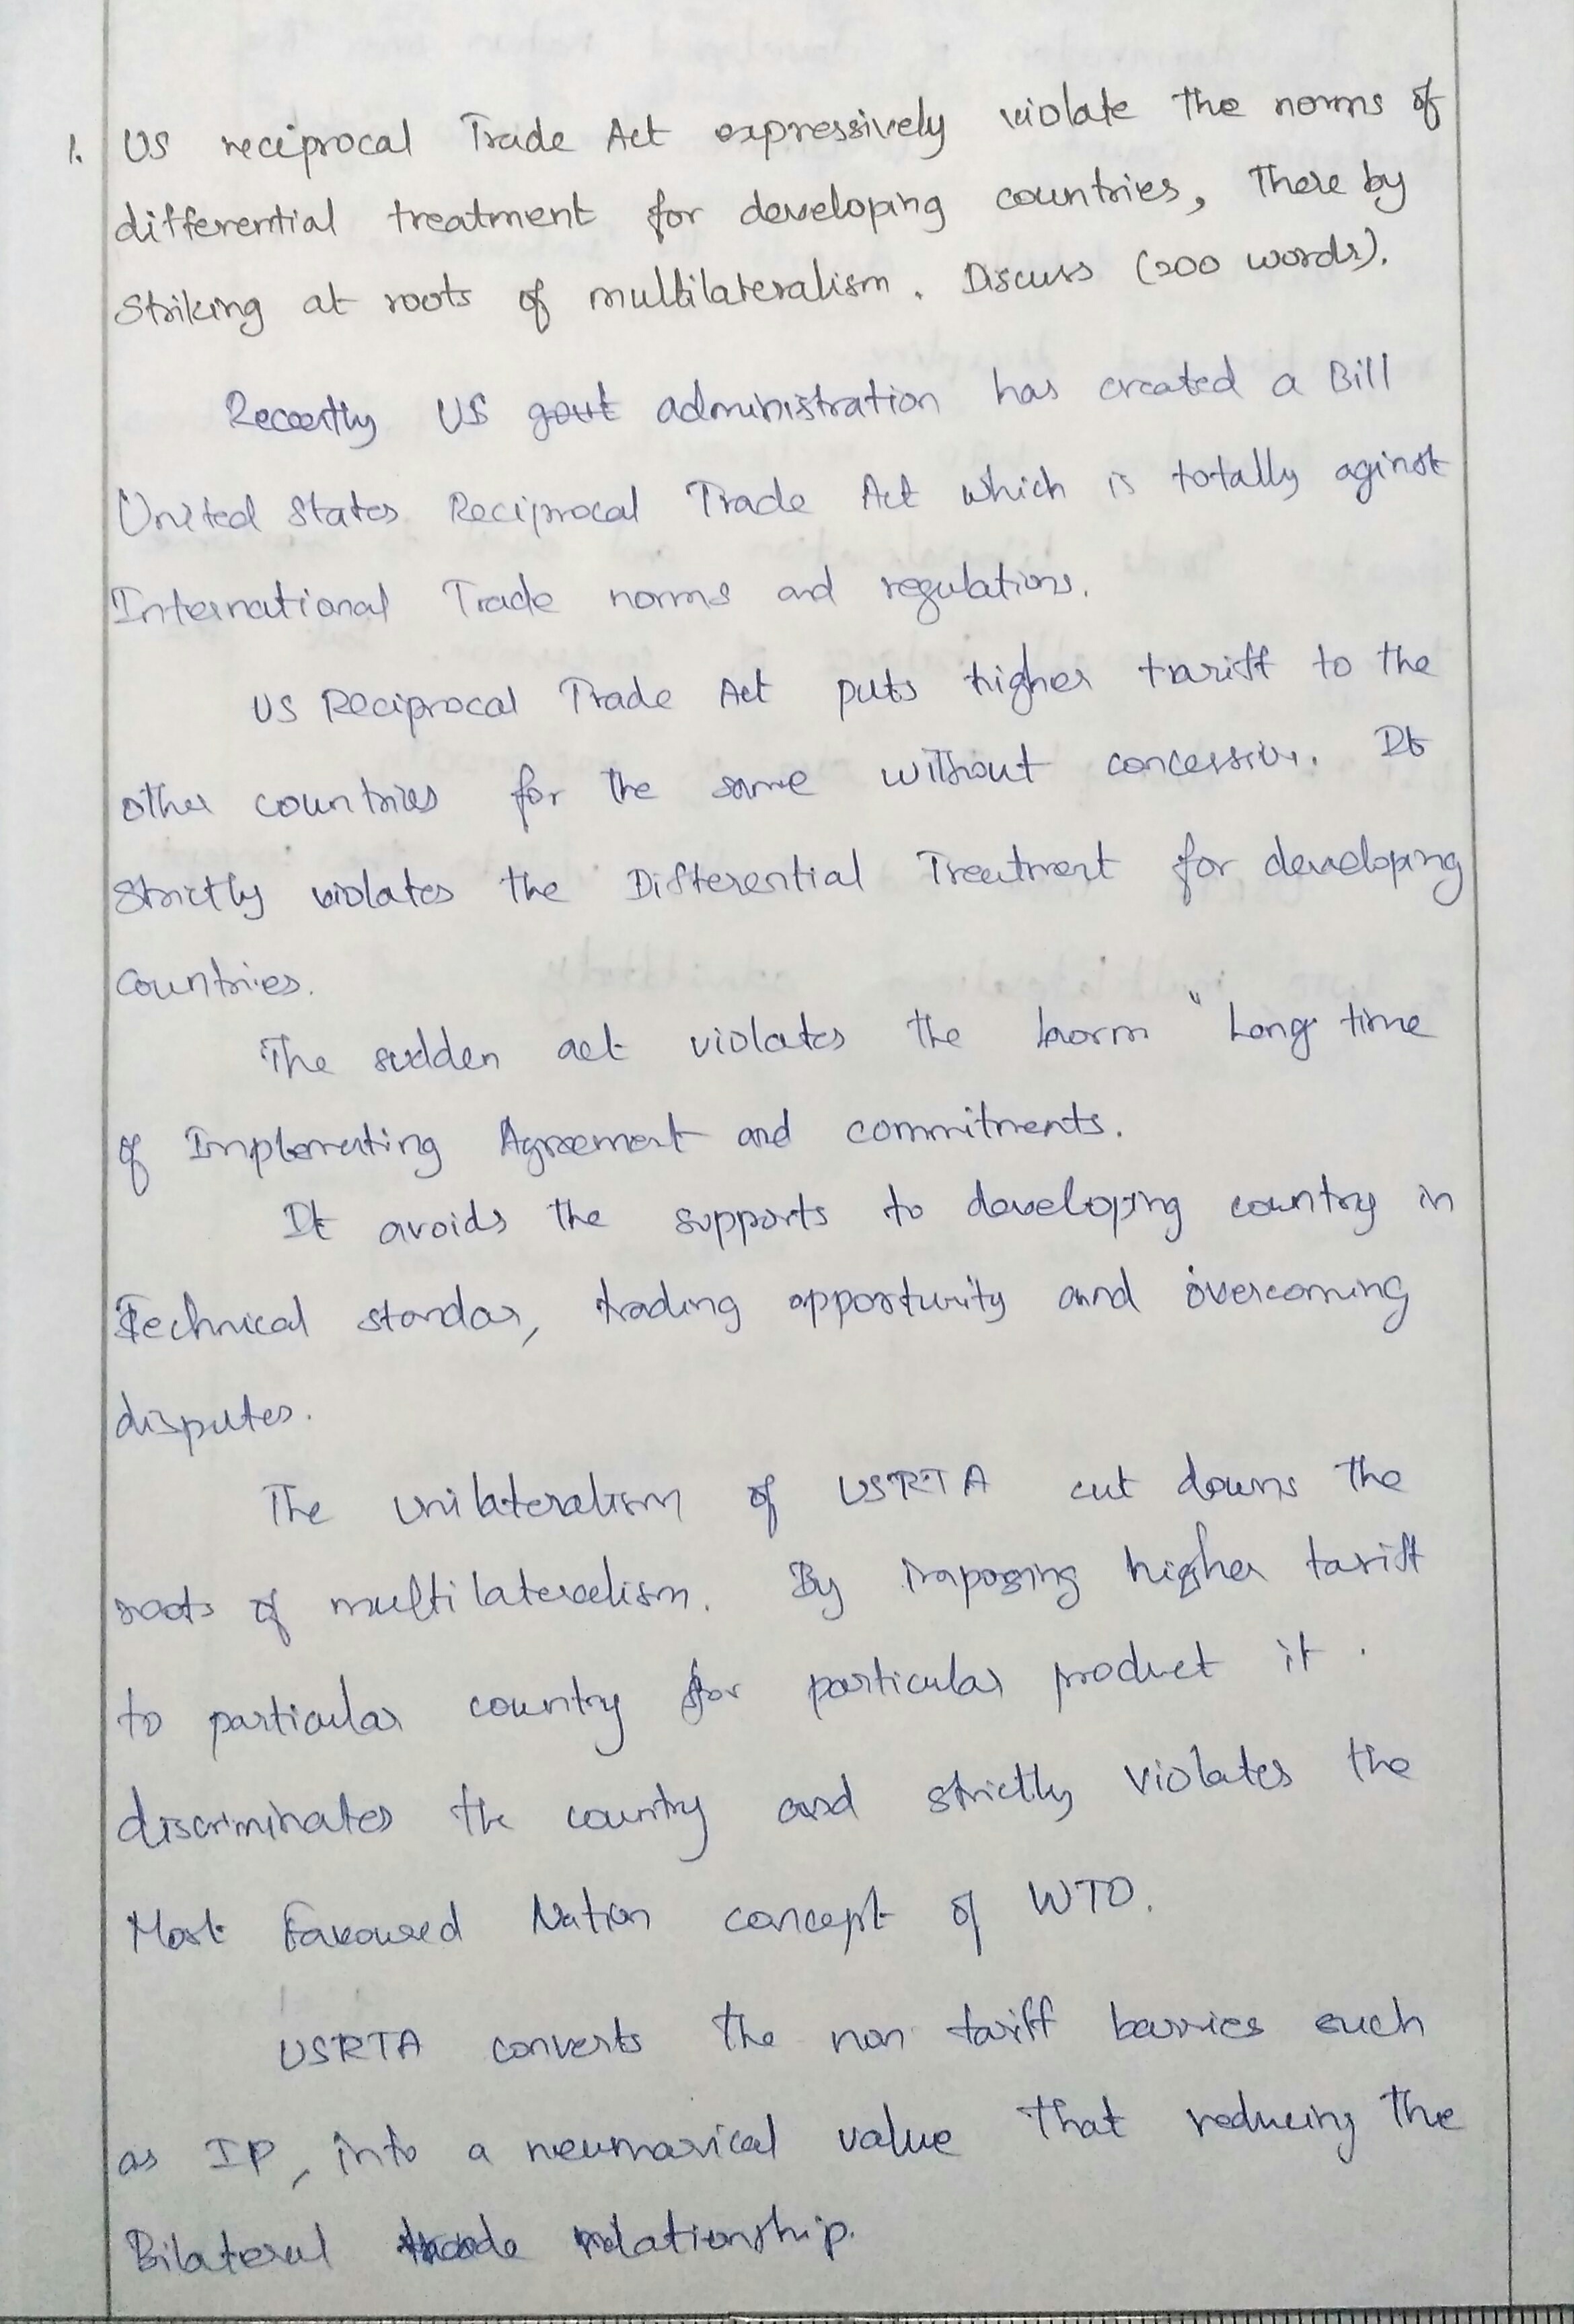 1. US reciprocal Trade Act expressively violate the norms of
differential treatment for developing countries, There by
Striking at roots of multilateralism. Discuss (200 words).
Recently US govt administration has created a Bill
United States Reciprocal Trade Act which is totally aginst
International Trade norms and regulations.
US Reciprocal Trade Act puts higher tariff to the
other countries for the same without concession. It
strictly violates the Differential Treatment for developing
Countries.
The sudden act violates the norm "Long time
of Implementing Agreement and commitments.
It avoids the supports to developing country in
Technical standar, trading opportunity and overcoming
disputes.
The unilateralism of USRTA cut downs the
roots of multilateralism. By imposing higher tariff
to particular country for particular product it
discriminates the country and strictly violates the
Most Favoured Nation concept of WTO.
USRTA converts the non tariff barries such
as IP, into a neumarical value That reducing the
Bilateral trade relationship.